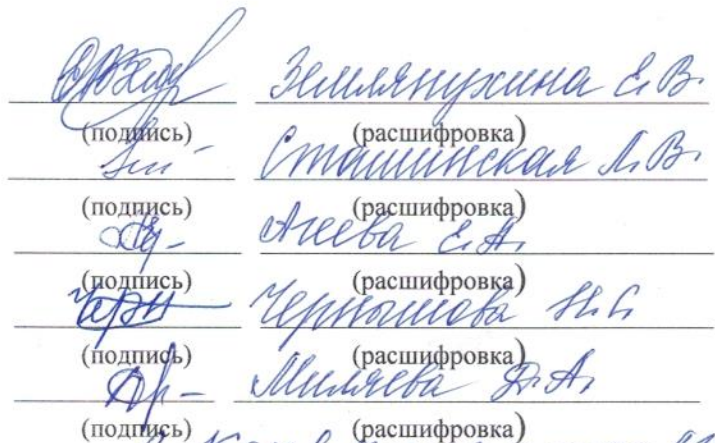 Землянухина Е.В.
(подпись) (расшифровка)
Сташинская Л.В.
(подпись) (расшифровка)
Агеева Е.А.
(подпись) (расшифровка)
Черн Чернышова Н.С.
(подпись) (расшифровка)
Миляева Д.А.
(подпись) (расшифровка)